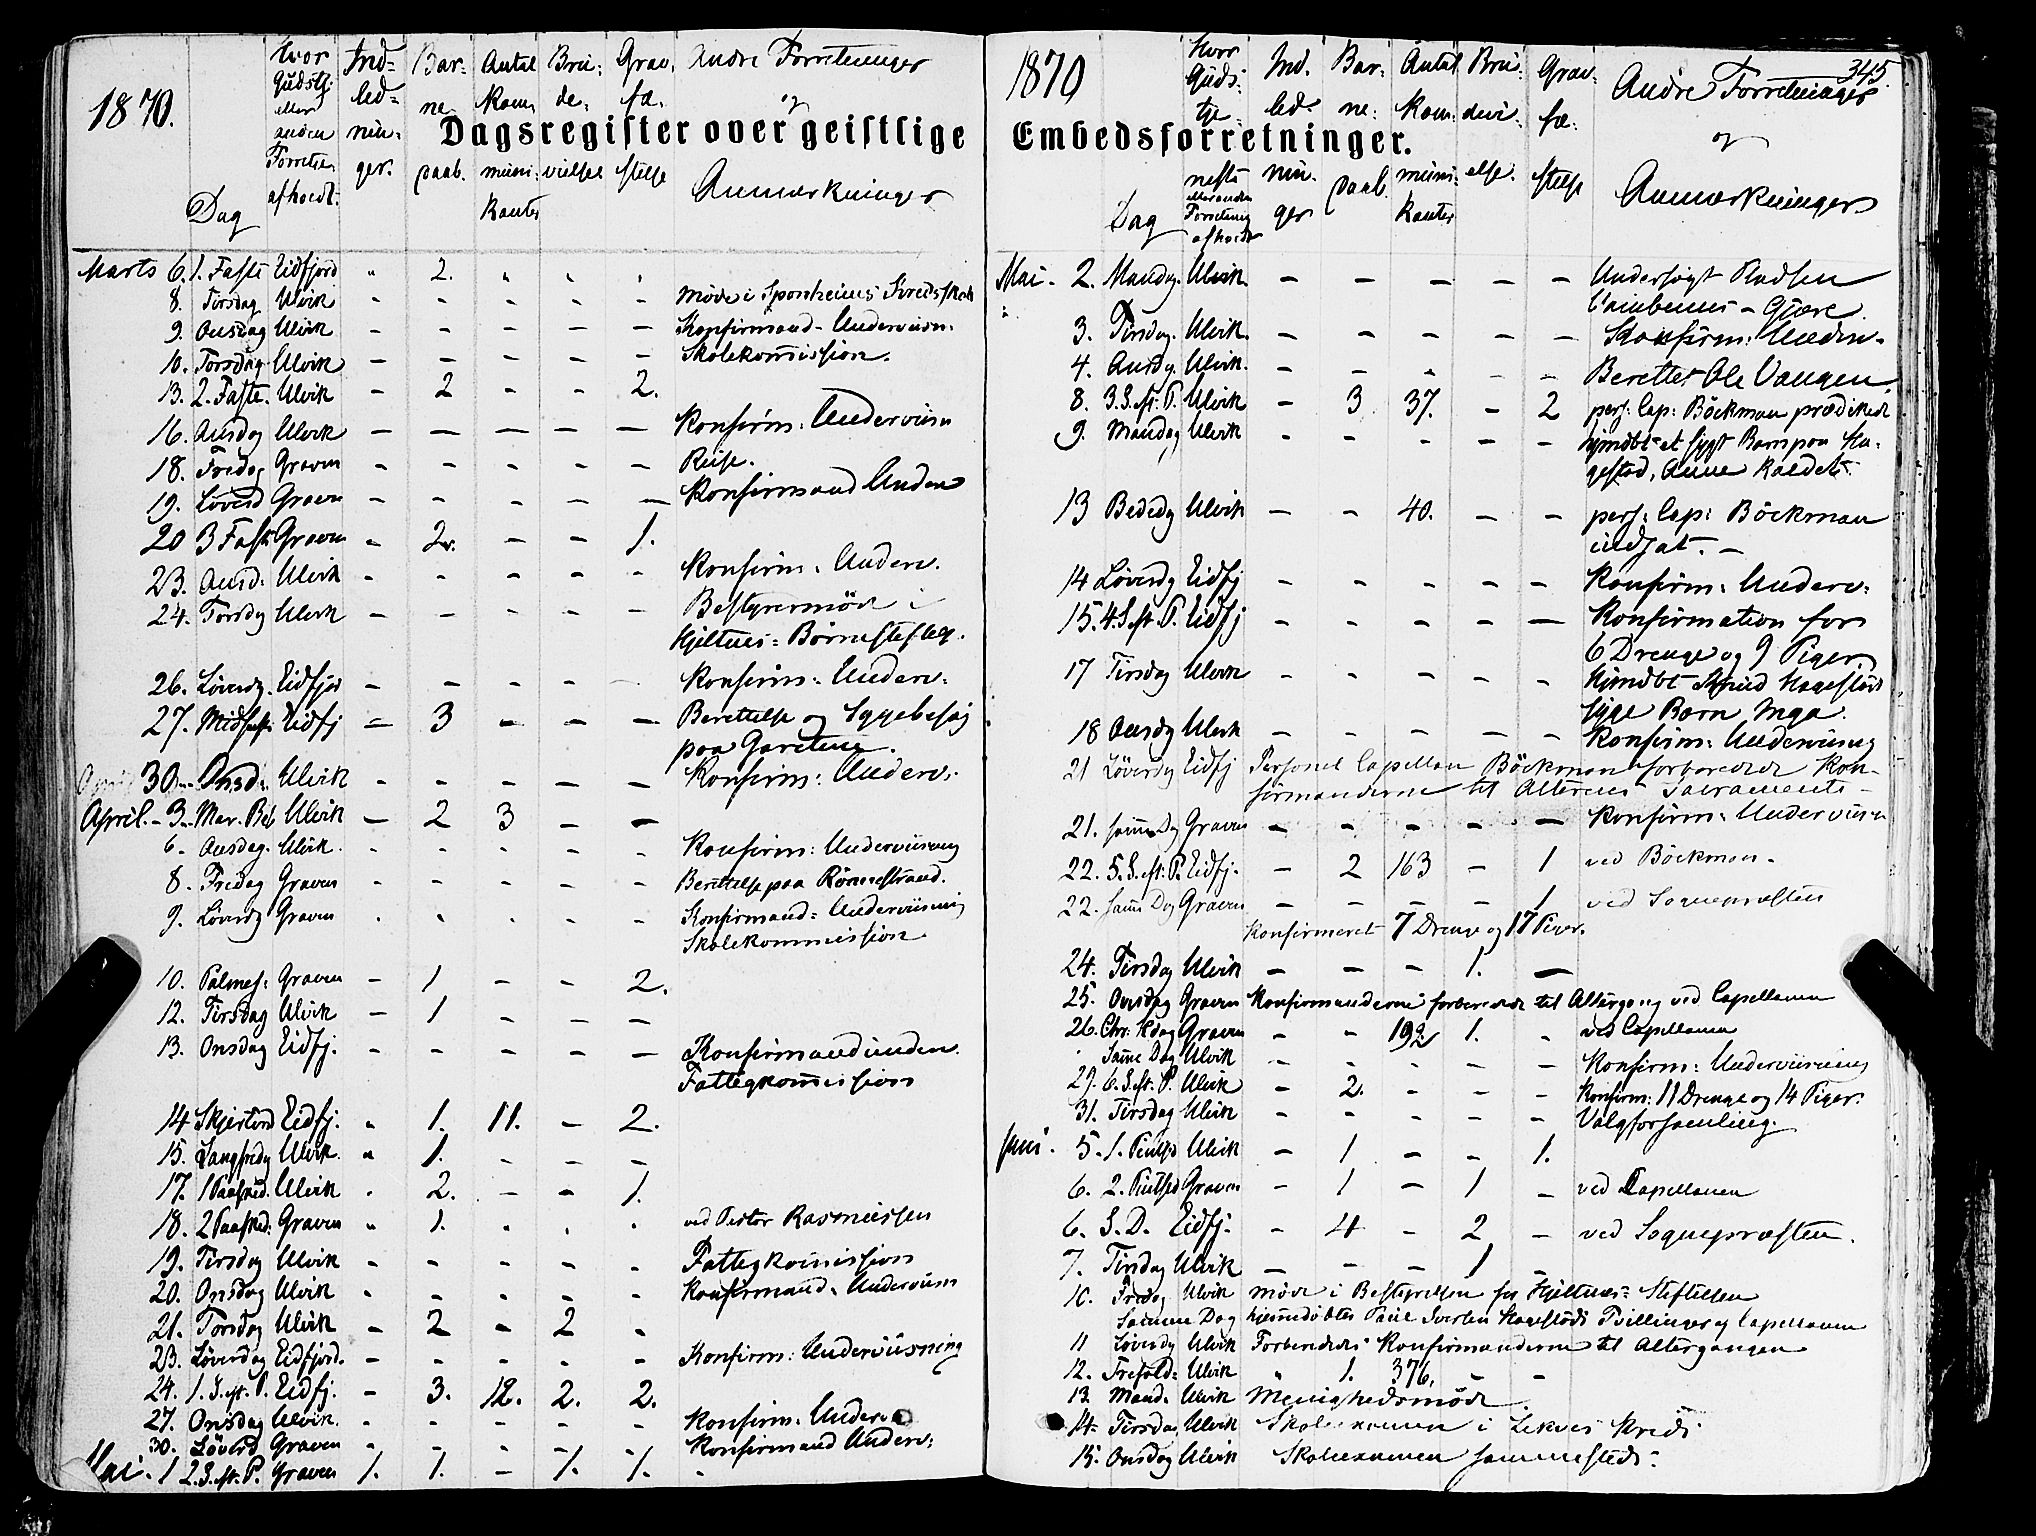 1870.
Dagsregister over geistlige
Dag
Hvor Gudstj. eller anden Forretn. afholdt.
Ind-led-nin-ger.
Bar-ne-daab.
Antal Kom-muni-kanter
Bru-de-vielse
Grav-fæ-stelse
Andre Forretninger og Anmærkninger
Marts 6. 1. Faste Eidfjord " 2. " " "
8. Tirsdag Ulvik - - - - - Møde i Sponheims Kredsskole
9. Onsdag Ulvik - - - - - Konfirmand-Underviisn.
10. Torsdag Ulvik - - - - - Skolekommission.
13. 2. Faste. Ulvik - 2 - - 2.
16. Onsdag Ulvik - - - - - Konfirm: Underviisn
18. Fredag Graven - - - - - Reise.
19. Løverd Graven - - - - - Konfirmand Underv
20 3 Faste Graven - 2. - - 1.
23. Onsd: Ulvik - - - - - Konfirm. Underv.
24. Torsdag Ulvik - - - - - Bestyrermøde i
Hjeltnes-Børnestiftelse.
26. Løverdg. Eidfjord - - - - - Konfirm: Underv.
27. Midfaste Eidfj - 3 - - - Berettelse og Sygebesøg
paa Garetun.
30. Onsd: Ulvik - - - - - Konfirm: Underv.
April - 3. Mar. Beb Ulvik - 2 3 - -
6. Onsdag. Ulvik. - - - - - Konfirm: Underviisning
8. Fredag Graven - - - - - Berettelse paa Rønnestrand.
9. Løverdg Graven - - - - - Konfirmand-Underviisning
Skolekommission
10. Palmes: Graven - 1 - - 2.
12. Tirsdag Ulvik - 1 - - -
13. Onsdag Eidfj. - - - - - Konfirmandunderv.
Fattigkommission
14 Skjertord Eidfj. " 1. 11. - 2.
15. Langfredg Ulvik " 1. - - -
17. 1 Paasked. Ulvik . 2. - - 1.
18. 2 Paasked. Graven " 1. . . . ved Pastor Rasmussen
19. Tirsdag Ulvik - - - - . Fattigkommission
20. Onsdag Ulvik . - - - . Konfirmand-Underviisn
21. Torsdag Ulvik - 2 - 2 .
23. Løverdag Eidfjord. - - - - . Konfirm: Underviisning
24. 1. S. eft. P. Eidfj. - 3. 12. 2. 2.
27. Onsdag Ulvik. - - - - - Konfirm: Underv
30. Løverd Graven - - - - - Konfirmand Underv:
Mai. 1 2. S. eft. P. Graven 1. 1. - 1. 1.
1870
345.
Embedsforretninger.
Dag
Hvor Guds-tje-neste eller anden Forretning afholdt
Ind-led-nin-ger
Bar-ne-daab.
Antal Kom-muni-kanter
Bru-devi-else.
Grav-fæ-stelse
Andre Forretninger og Anmærkninger
Mai. 2. Mandag. Ulvik - - - - - Undersøgt
3. Tirsdag. Ulvik. - - - - - Konfirm: Underv.
4. Onsdg. Ulvik. - - - - - Berettet Ole Vangen
8. 3. S. eft. P. Ulvik - 3 37. - 2 pers: Cap: Böckman prædikede
9. Mandag Ulvik - - - - - hjmdbt et sygt Barn paa Ha-
gestad, Anne kaldet.
13 Bededg Ulvik - - 40. - - pers: Cap: Böckman
indsat. -
14 Løverdg Eidfj - - - - - Konfirm: Underv.
15. 4. S. eft. P. Eidfj - - - - - Konfirmation for
6 Drenge og 9 Piger
17 Tirsdag Ulvik - - - - - hjmdbt Hagestads
syge Barn Inga.
18 Onsdg Ulvik - - - - - Konfirm: Underviisning
21 Løverdg Eidfj Personel Capellan Böckman forberedede Kon-
firmanderne til Alterens Sacramente -
21. samme Dg Graven - - - - - Konfirm: Underviisn
22. 5. S. eft. P. Eidfj. - 2 163 - 1 ved Böckman.
22. samme Dg Graven - - - - 1 ved Sognepræsten
Konfirmeret 7 Drenge og 17 Piger.
24. Tirsdag Ulvik - - - 1. -
25. Onsdag Graven Konfirmanderne forberedede til Altergang ved Capellanen
26. Chr: Hdag Graven - - 192 1. . ved Capellanen
Samme Dag Ulvik - - - - - Konfirm: Underviisning
29. 6. S. eft. P. Ulvik - 2. . - - Konfirm: 11 Drenge og 14 Piger.
31. Tirsdag Ulvik - - - - - Valgforsamling.
Juni. 5. 1. Pintsd Ulvik - 1 - - 1.
6. 2. Pintsd Graven - 1 - 1 - ved Capellanen
6. S. D. Eidfj. - 4 - 2 - ved Sognepræsten.
7. Tirsdag Ulvik - - - 1 -
10. Fredag Ulvik Møde i Bestyrelsen for Hjeltnes-Stiftelsen
Samme Dag hjemmedøbtes Paul Iversen Hagestads Tvillinger af Capellanen
11 Løverdg Ulvik Forberedede Konfirmanderne til Altergangen
12. Trefold: Ulvik " 1. 376. - -
13. Mand. Ulvik Menighedsmøde.
14. Tirsdag Ulvik Skoleexamen i Lekves Kreds
15. Onsdag Ulvik Skoleexamen sammesteds.